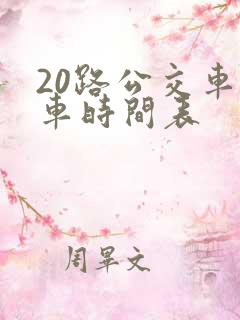 20路公交車
車時間表
周畢文